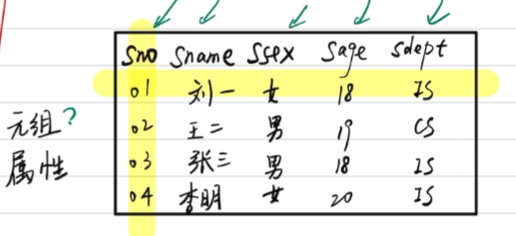 Sno Sname Ssex Sage Sdept
01 刘一 女 18 IS
元组? 02 王二 男 19 CS
属性 03 张三 男 18 IS
04 李明 女 20 IS